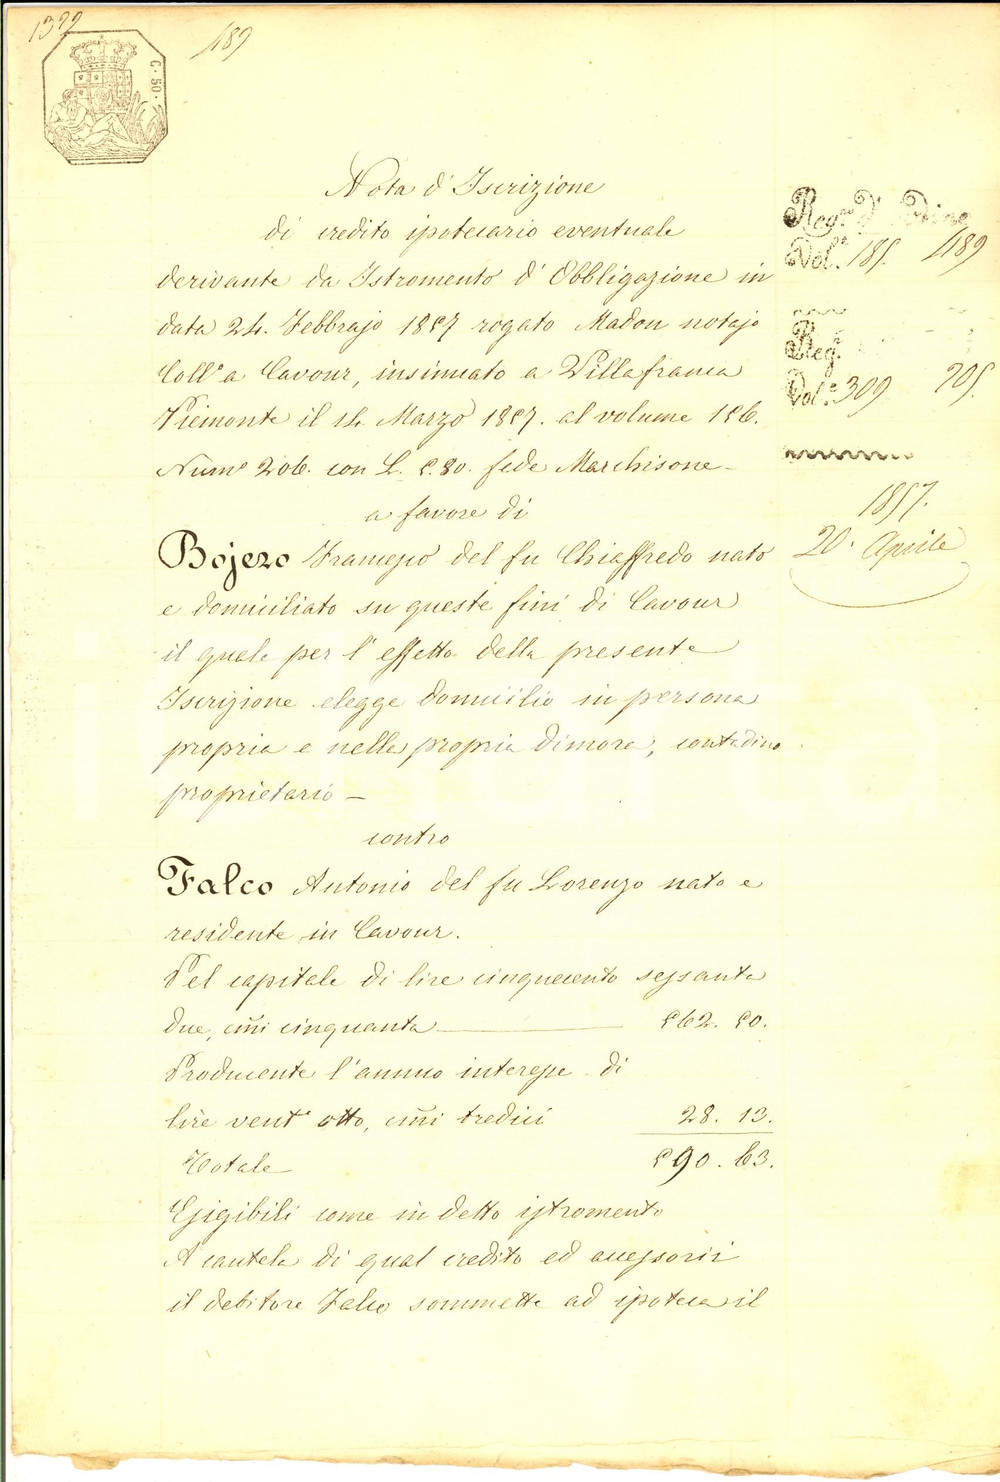 1399
489
C. 50.
Nota d'Iscrizione
di credito ipotecario eventuale
derivante da Istromento d'Obbligazione in
data 24. Febbrajo 1857 rogato Madon notajo
Coll.° a Cavour, insinuato a Villafranca
Piemonte il 14 Marzo 1857. al volume 156.
Num° 206. con L. 5.80. fede Marchisone
a favore di
Bojero Francesco del fu Chiaffredo nato
e domiciliato su queste fini di Cavour
il quale per l'effetto della presente
Iscrizione elegge domicilio in persona
propria e nella propria dimora, contadino
proprietario —
contro
Falco Antonio del fu Lorenzo nato e
residente in Cavour.
Pel capitale di lire cinquecento sessanta
due, cmi cinquanta 562. 50.
Producente l'annuo interesse di
lire vent'otto, cmi tredici 28. 13.
Totale 590. 63.
Esigibili come in detto istromento
A cautela di qual credito ed accessorii
il debitore Falco sommette ad ipoteca il
Reg.° d'Ordine
Vol.° 185. 489
Reg.°
Vol.° 309 205.
1857.
20. Aprile